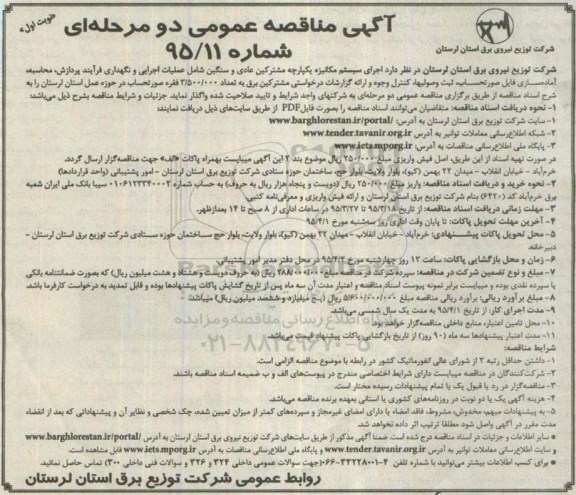 نوبت اول
آگهی مناقصه عمومی دو مرحله‌ای
شماره ۹۵/۱۱
شرکت توزیع نیروی برق استان لرستان
شرکت توزیع نیروی برق استان لرستان در نظر دارد اجرای سیستم مکانیزه یکپارچه مشترکین عادی و سنگین شامل عملیات اجرایی و نگهداری فرآیند پردازش، محاسبه،
آماده‌سازی فایل صورتحساب، ثبت وصولیها، کنترل وجوه و ارائه گزارشات درخواستی مشترکین برق به تعداد ۳/۵۰۰/۰۰۰ فقره صورتحساب در حوزه عمل استان لرستان را به
شرح اسناد مناقصه از طریق برگزاری مناقصه عمومی دو مرحله‌ای به شرکتهای واجد شرایط و تایید صلاحیت شده واگذار نماید. جزئیات و شرایط مناقصه بشرح ذیل می‌باشد:
۱- نحوه دریافت اسناد مناقصه: متقاضیان می‌توانند اسناد مناقصه را بصورت فایل PDF از طریق سایت‌های ذیل دریافت نمایند:
۱- سایت شرکت توزیع برق استان لرستان به آدرس: www.barghlorestan.ir/portal/
۲- شبکه اطلاع‌رسانی معاملات توانیر به آدرس www.tender.tavanir.org.ir
۳- پایگاه ملی اطلاع‌رسانی مناقصات به آدرس www.iets.mporg.ir
در صورت تهیه اسناد از این طریق، اصل فیش واریزی مبلغ ۲۵۰/۰۰۰ ریال موضوع بند ۲ این آگهی میبایست بهمراه پاکات «الف» جهت مناقصه‌گزار ارسال گردد.
خرم‌آباد - خیابان انقلاب - میدان ۲۲ بهمن (کیو)، بلوار ولایت، بلوار حج، ساختمان حوزه ستادی شرکت توزیع برق استان لرستان - امور پشتیبانی (واحد قراردادها)
۲- نحوه خرید و دریافت اسناد مناقصه: واریز مبلغ ۲۵۰/۰۰۰ ریال (دویست و پنجاه هزار ریال به حروف) به حساب شماره ۰۱۰۶۱۲۳۳۴۰۰۰۲ سیبا بانک ملی ایران شعبه
برق خرم‌آباد کد (۶۴۲۰) بنام شرکت توزیع برق استان لرستان و ارائه فیش واریزی و معرفی‌نامه کتبی
۳- مهلت زمانی دریافت اسناد مناقصه: از تاریخ ۹۵/۳/۱۸ تا ۹۵/۳/۲۷ در ساعات اداری از ۸ صبح تا ۱۴ بعدازظهر.
۴- آخرین مهلت تحویل پاکات: تا پایان وقت اداری روز سه‌شنبه مورخ ۹۵/۴/۱
۵- محل تحویل پاکات پیشنهادی: خرم‌آباد - خیابان انقلاب - میدان ۲۲ بهمن (کیو)، بلوار ولایت، بلوار حج ساختمان حوزه ستادی شرکت توزیع برق استان لرستان -
دبیرخانه.
۶- زمان و محل بازگشایی پاکات: ساعت ۱۲ روز چهارشنبه مورخ ۹۵/۴/۲ در محل دفتر مدیر امور پشتیبانی.
۷- مبلغ و نوع تضمین شرکت در مناقصه: سپرده شرکت در مناقصه مبلغ ۲۸۸/۰۰۰/۰۰۰ ریال (به حروف دویست و هشتاد و هشت میلیون ریال) که بصورت ضمانتنامه بانکی
یا سپرده نقدی بوده و میبایست برابر نمونه پیوست اسناد مناقصه و اعتبار مدت آن سه ماه پس از تاریخ گشایش پاکات پیشنهادها بوده و قابل تمدید به درخواست کارفرما باشد.
۸- مبلغ برآورد ریالی: برآورد ریالی مناقصه مبلغ ۵/۶۰۰/۰۰۰/۰۰۰ ریال (پنج میلیارد و ششصد میلیون ریال) میباشد.
۹- مدت اجرای کار: از تاریخ ۹۵/۴/۱ به مدت یک سال شمسی می‌باشد.
۱۰- محل تامین اعتبار: منابع داخلی مناقصه‌گزار خواهد بود.
۱۱- مدت اعتبار پیشنهادها سه ماه (۹۰ روز) از تاریخ بازگشایی پاکات پیشنهاد قیمت می‌باشد.
شرایط مناقصه:
۱- داشتن حداقل رتبه ۲ از شورای عالی انفورماتیک کشور در رابطه با موضوع مناقصه الزامی است.
۲- شرکت‌کنندگان در مناقصه میبایست دارای شرایط اختصاصی مندرج در پیوست‌های الف و ب ضمیمه اسناد مناقصه باشند.
۳- مناقصه‌گزار در رد یا قبول یک یا تمام پیشنهادات رسیده مختار است.
۴- هزینه آگهی یک یا دو نوبت در روزنامه‌های کشوری یا استانی بعهده برنده مناقصه می‌باشد.
۵- به پیشنهادات مبهم، مخدوش، مشروط، فاقد امضاء یا دارای امضای غیرمجاز و سپرده‌های کمتر از میزان تعیین شده، چک شخصی و نظایر آن و پیشنهاداتی که بعد از انقضاء
مدت مقرر در آگهی واصل شود مطلقا ترتیب اثر داده نخواهد شد.
* سایر اطلاعات و جزئیات در اسناد مناقصه درج شده است. ضمنا آگهی مذکور از طریق سایت‌های شرکت توزیع نیروی برق استان لرستان به آدرس www.barghlorestan.ir/portal/
و سایت اطلاع‌رسانی معاملات توانیر به آدرس www.tender.tavanir.org.ir و پایگاه ملی اطلاع‌رسانی مناقصات به آدرس www.iets.mporg.ir قابل مشاهده است.
* برای کسب اطلاعات بیشتر می‌توانید با شماره تلفن ۴-۰۶۶-۳۳۲۲۸۰۰۱ (جهت سوالات عمومی داخلی ۳۲۴ و ۳۲۶ و سوالات فنی داخلی ۳۰۰) تماس حاصل نمائید.
روابط عمومی شرکت توزیع برق استان لرستان
پایگاه اطلاع رسانی مناقصه و مزایده
۰۲۱-۸۸۳۴۹۶۷۰-۵